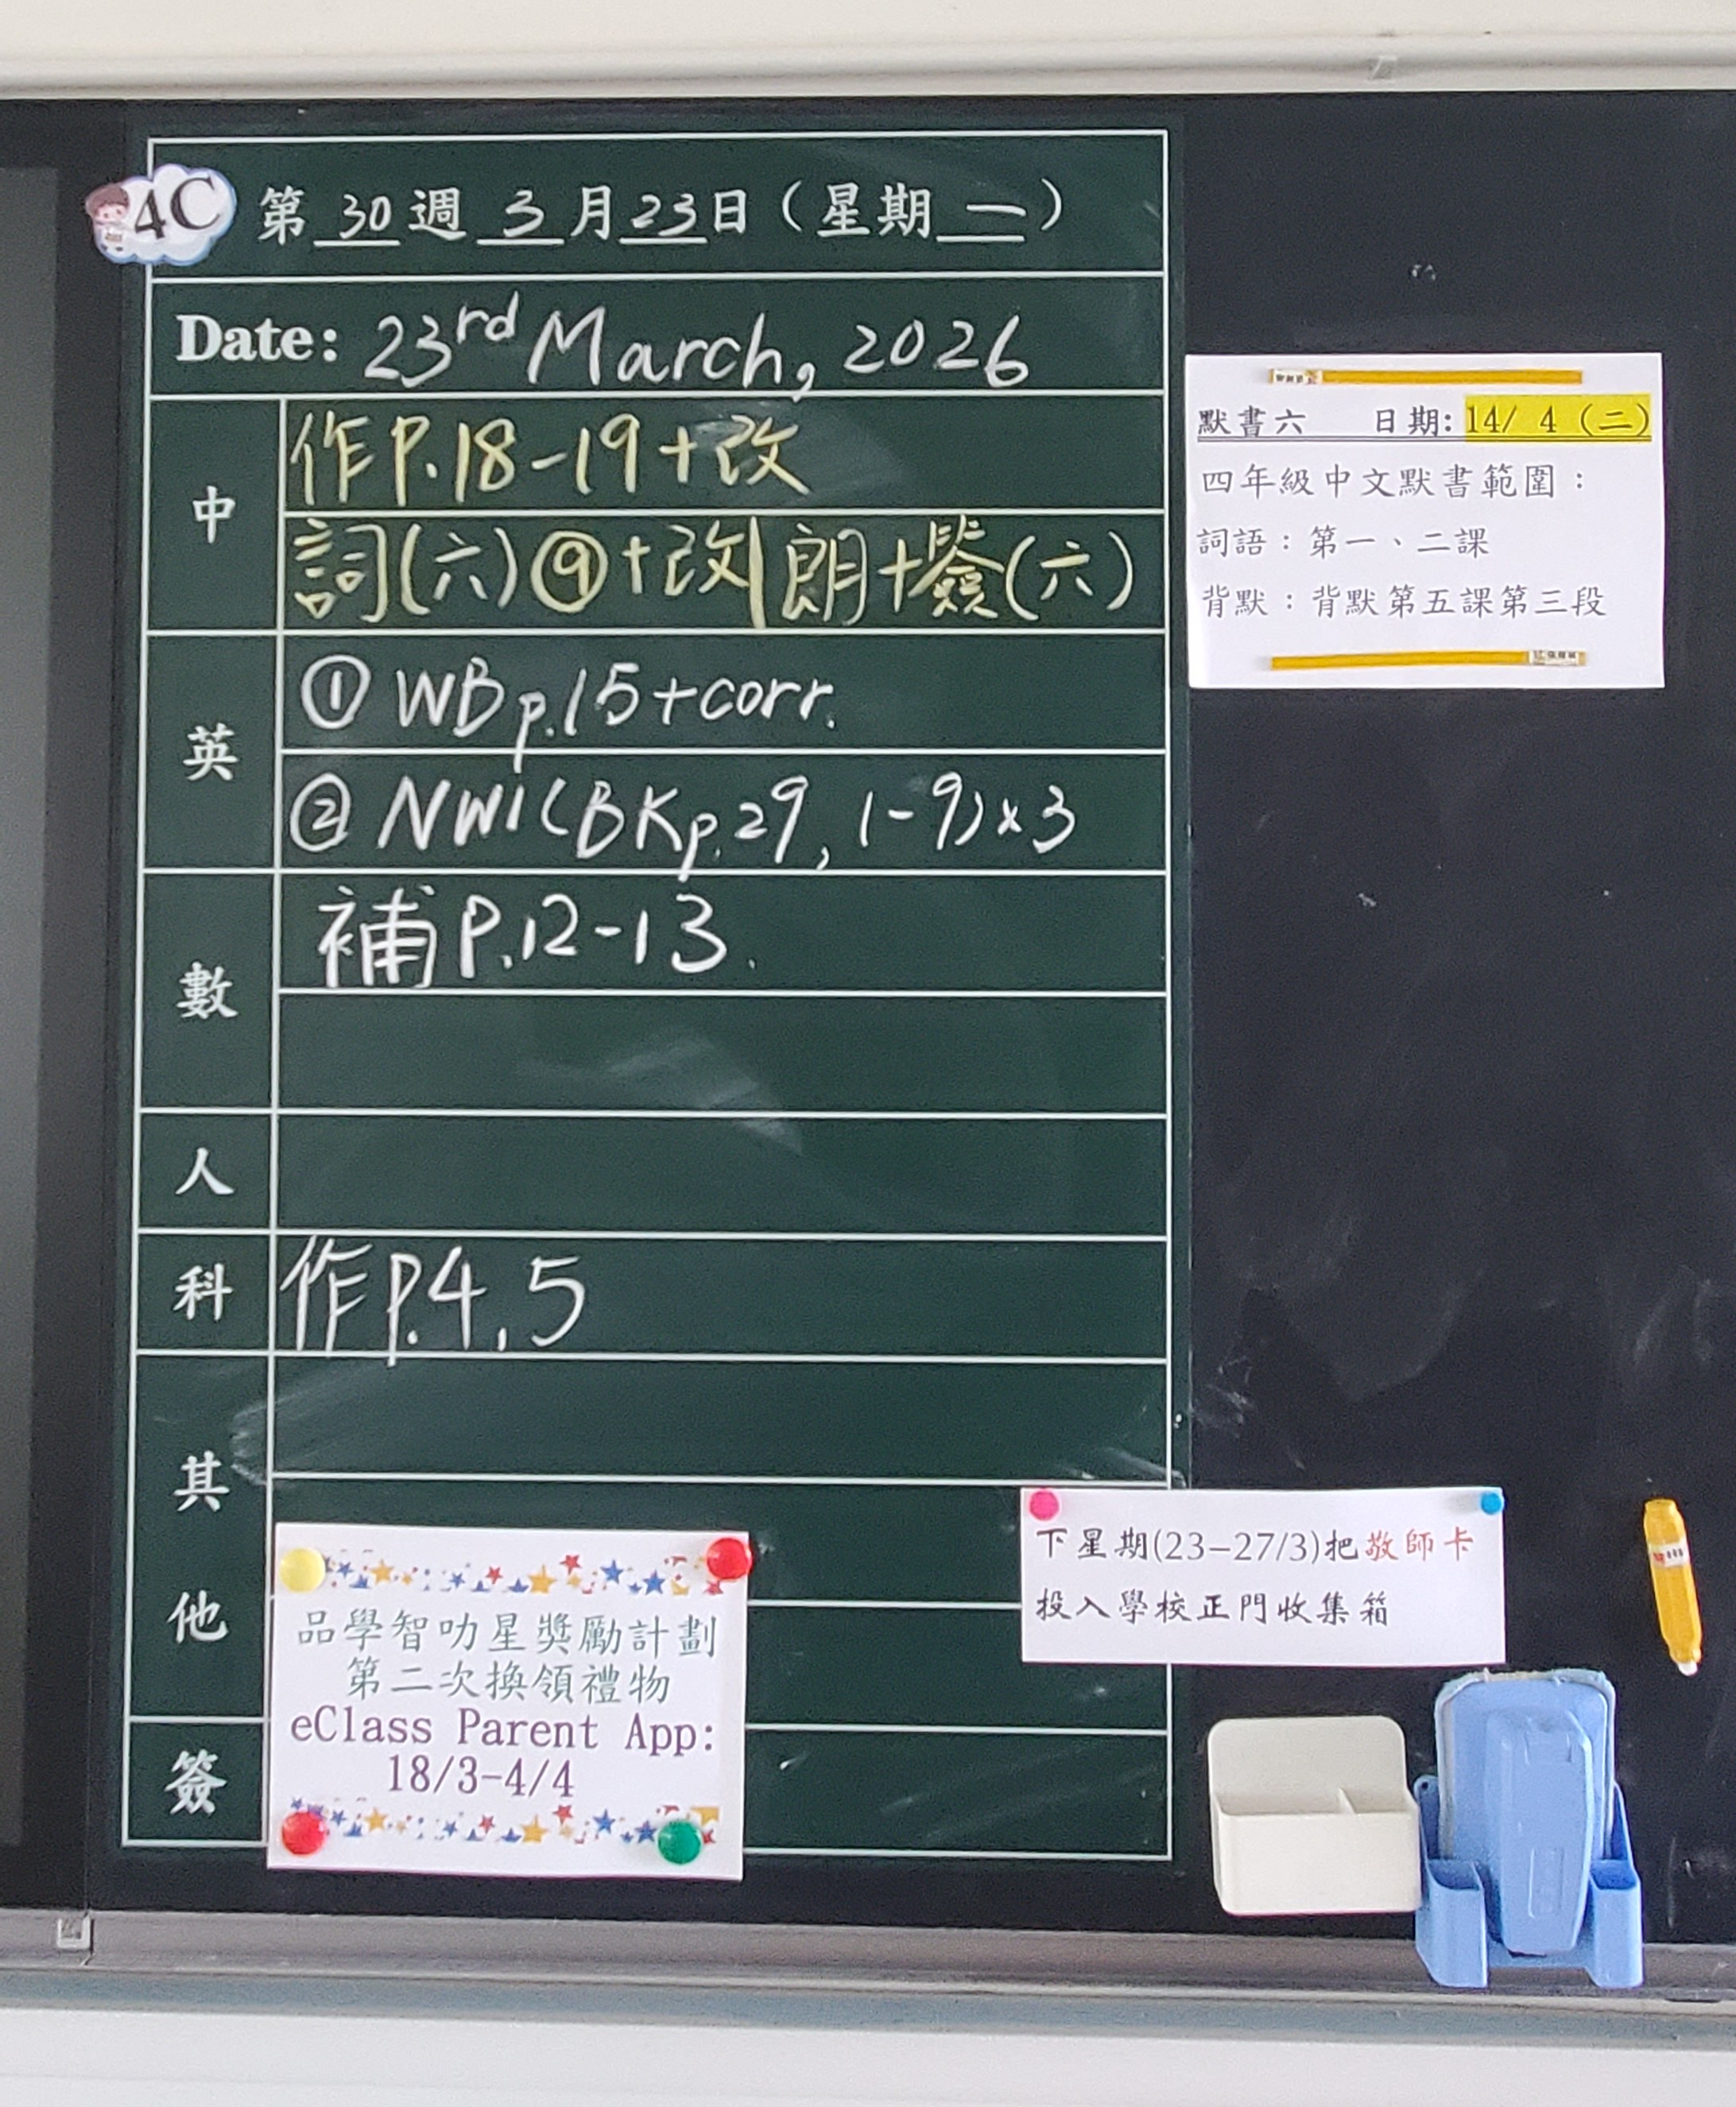 4C
第 30 週 3 月 23 日（星期 一 ）
Date: 23rd March, 2026
中
作P.18-19+改
詞(六)⑨+改|朗+簽(六)
英
① WB p.15+corr.
② NW1(BK p.29, 1-9)×3
數
補P.12-13.
人
科
作P.4,5
其
他
簽
默書六 日期: 14/ 4 (二)
四年級中文默書範圍：
詞語：第一、二課
背默：背默第五課第三段
下星期(23-27/3)把敬師卡
投入學校正門收集箱
品學智叻星獎勵計劃
第二次換領禮物
eClass Parent App:
18/3-4/4